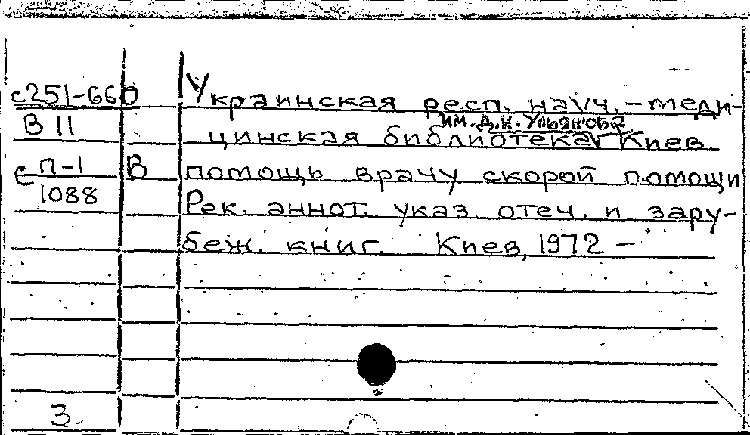 с251-660
В 11
с П-1
1088
В
Украинская респ. науч.-меди-
им. Д.И. Ульянова
цинская библиотека, Киев
помощь врачу скорой помощи
Рек. аннот. указ. отеч. и зару-
беж. книг. Киев, 1972 -
3